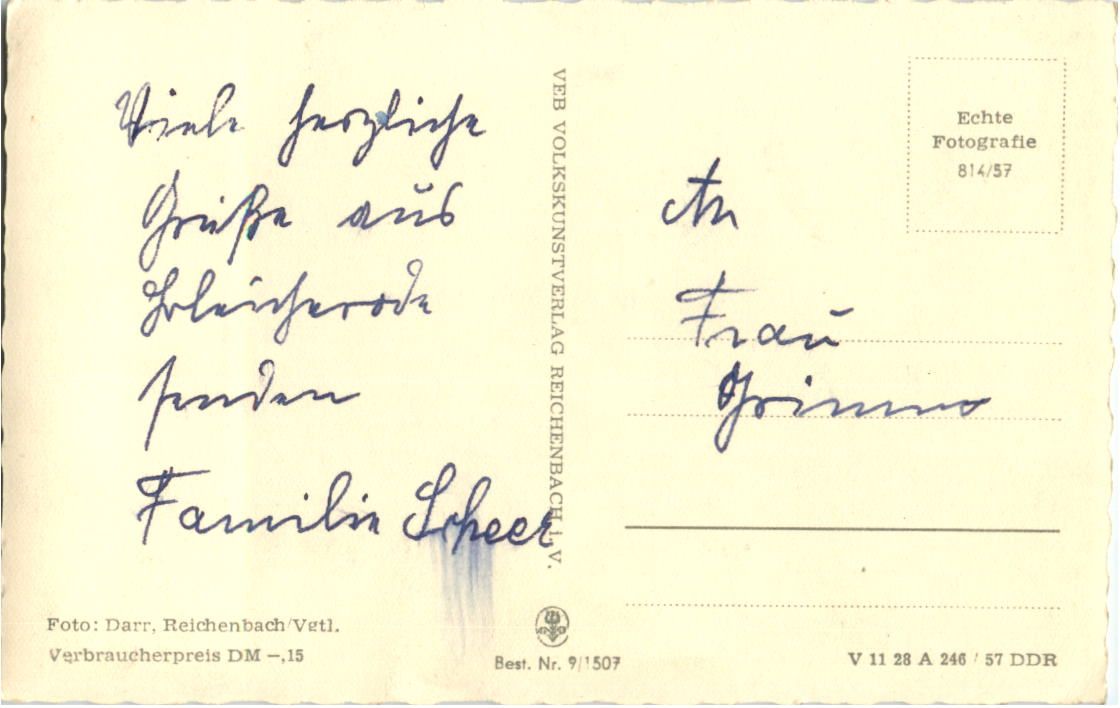 Viele herzliche
Grüße aus
Bleicherode
senden
Familie Scheer
Foto: Darr, Reichenbach/Vgtl.
Verbraucherpreis DM –,15
VEB VOLKSKUNSTVERLAG REICHENBACH i. V.
Best. Nr. 9/1507
Echte
Fotografie
814/57
An
Frau
V 11 28 A 246 / 57 DDR